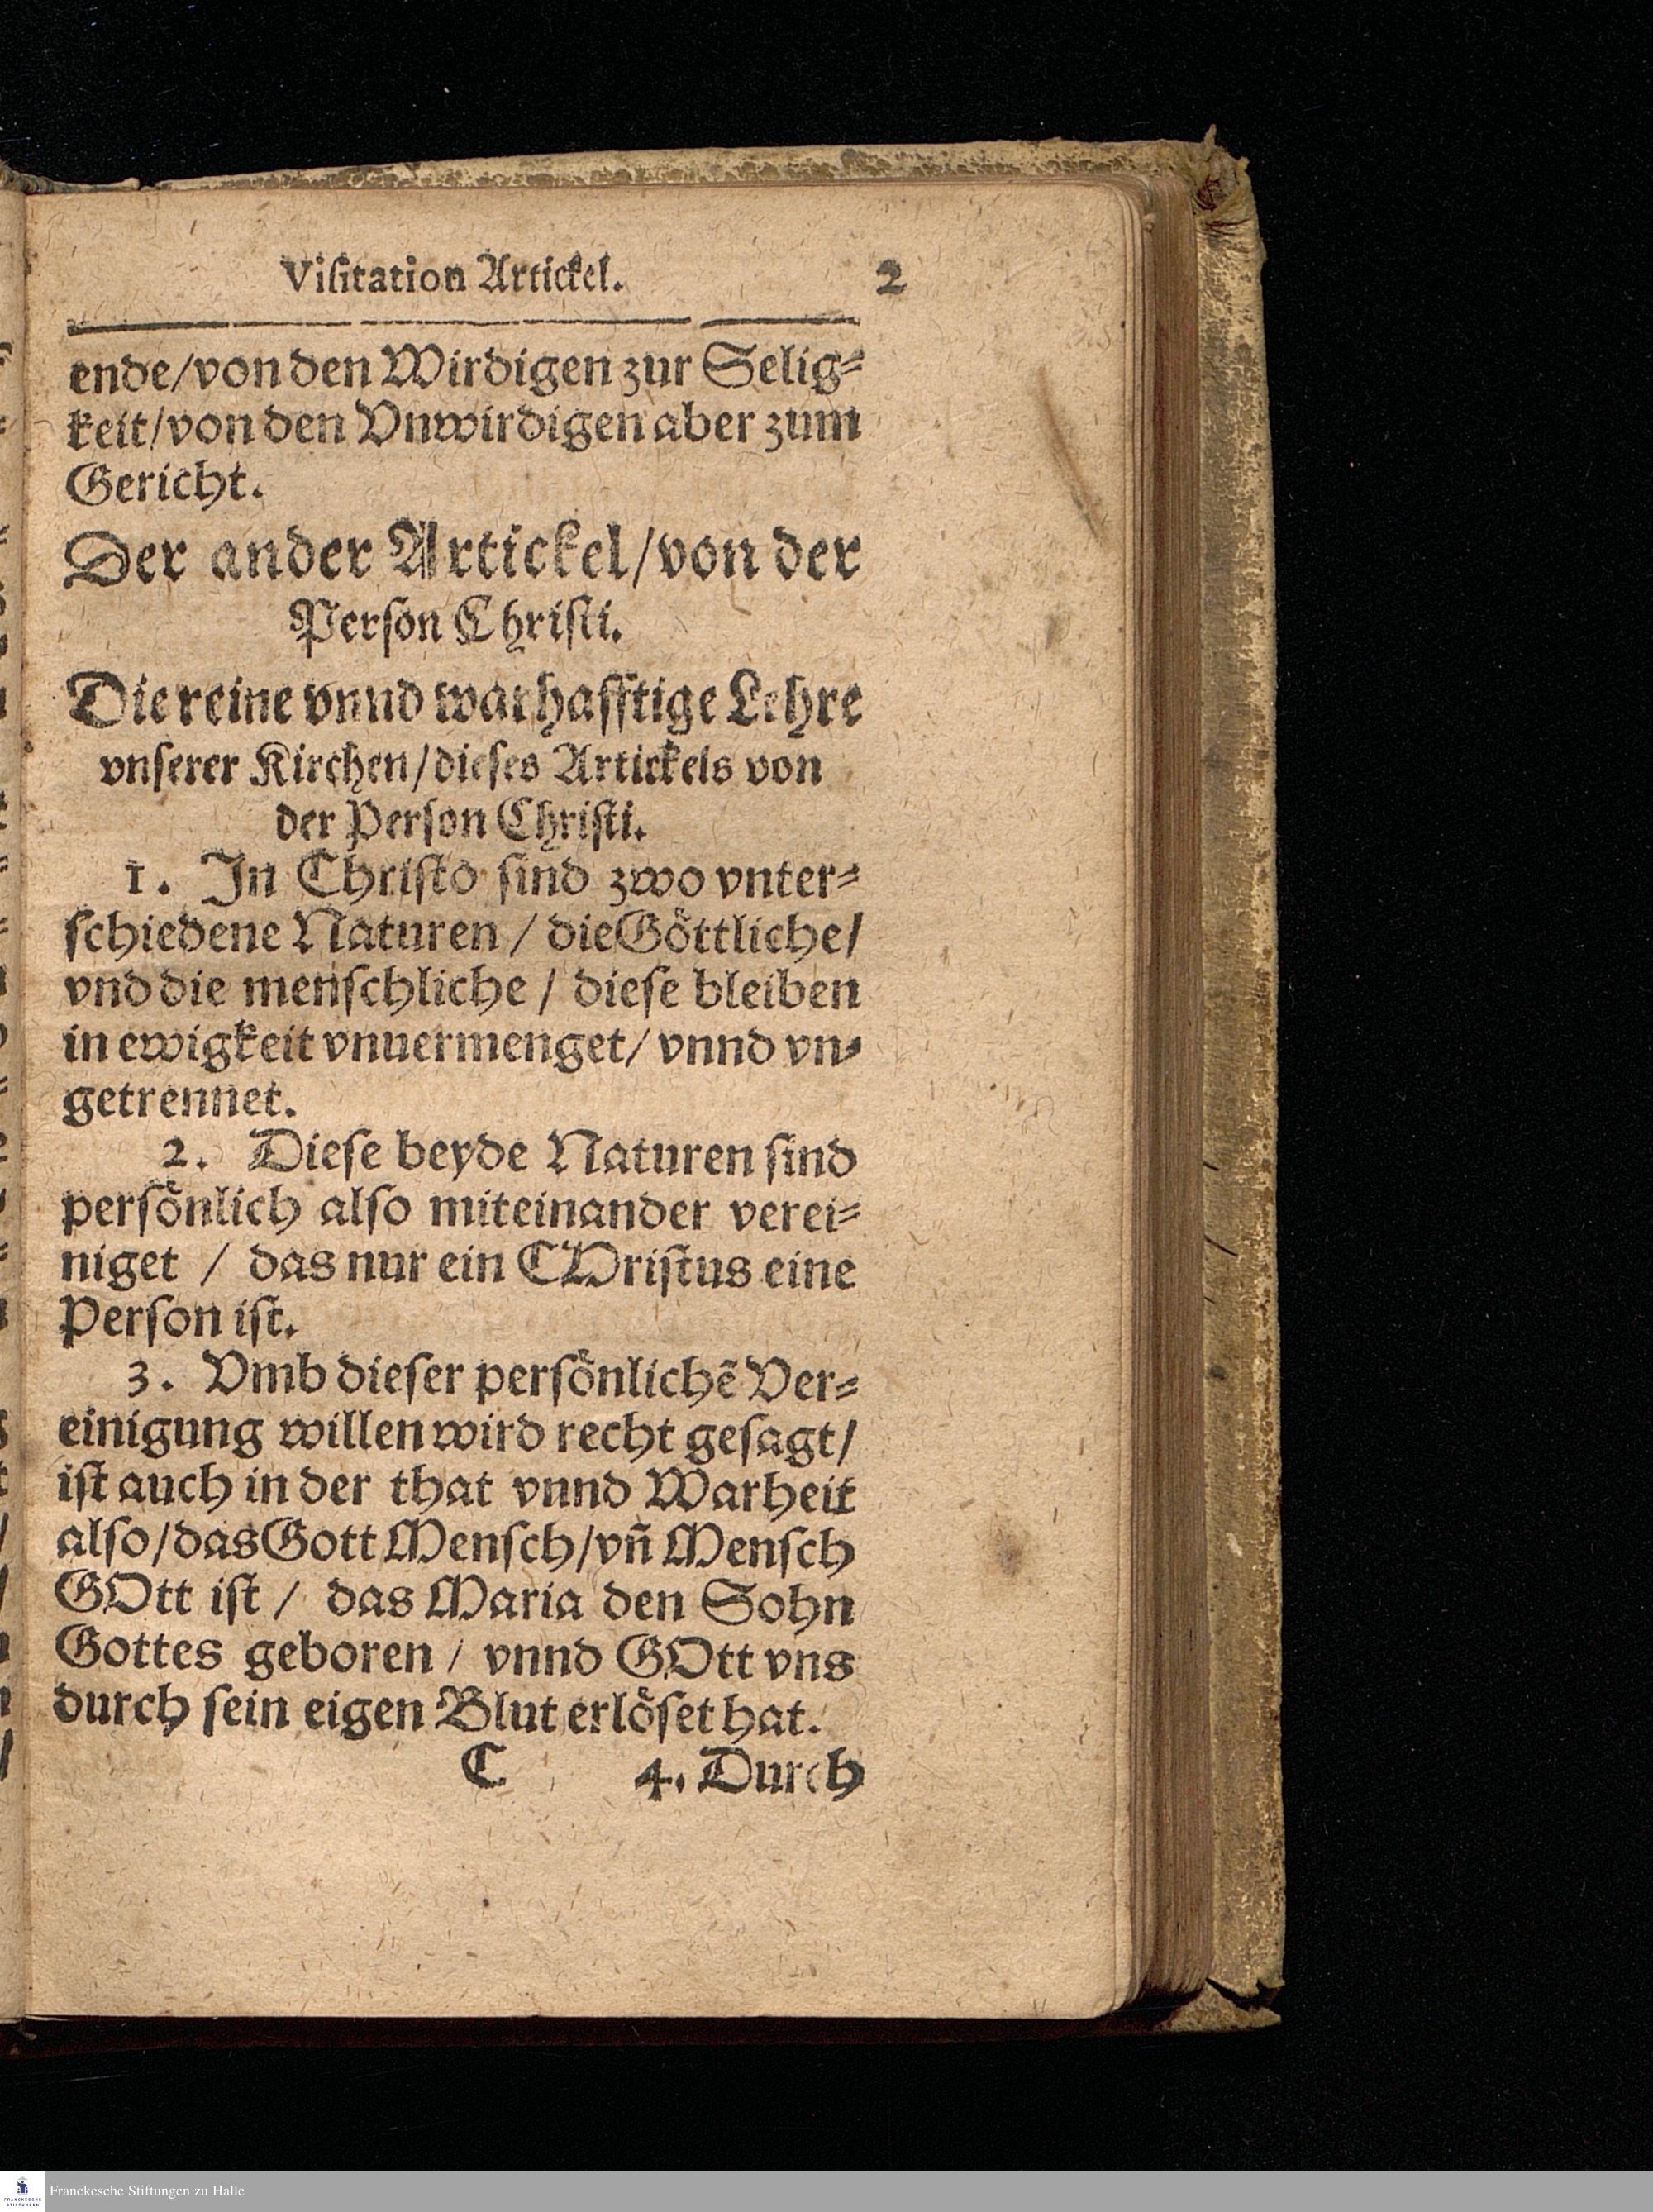 Viſitation Artickel. 2
ende/von den Wirdigen zur Selig⸗
keit/von den Vnwirdigen aber zum
Gericht.
Der ander Artickel/von der
Perſon Chriſti.
Die reine vnnd warhafftige Lehre
vnſerer Kirchen/dieſes Artickels von
der Perſon Chriſti.
1. In Chriſto ſind zwo vnter⸗
ſchiedene Naturen / die Göttliche/
vnd die menſchliche / dieſe bleiben
in ewigkeit vnuermenget/ vnnd vn⸗
getrennet.
2. Dieſe beyde Naturen ſind
perſönlich alſo miteinander verei⸗
niget / das nur ein CHriſtus eine
Perſon iſt.
3. Vmb dieſer perſönlichẽ Ver⸗
einigung willen wird recht geſagt/
iſt auch in der that vnnd Warheit
alſo/das Gott Menſch/vñ Menſch
GOtt iſt / das Maria den Sohn
Gottes geboren / vnnd GOtt vns
durch ſein eigen Blut erlöſet hat.
C 4. Durch
FRANCKESCHE
STIFTUNGEN
Franckesche Stiftungen zu Halle